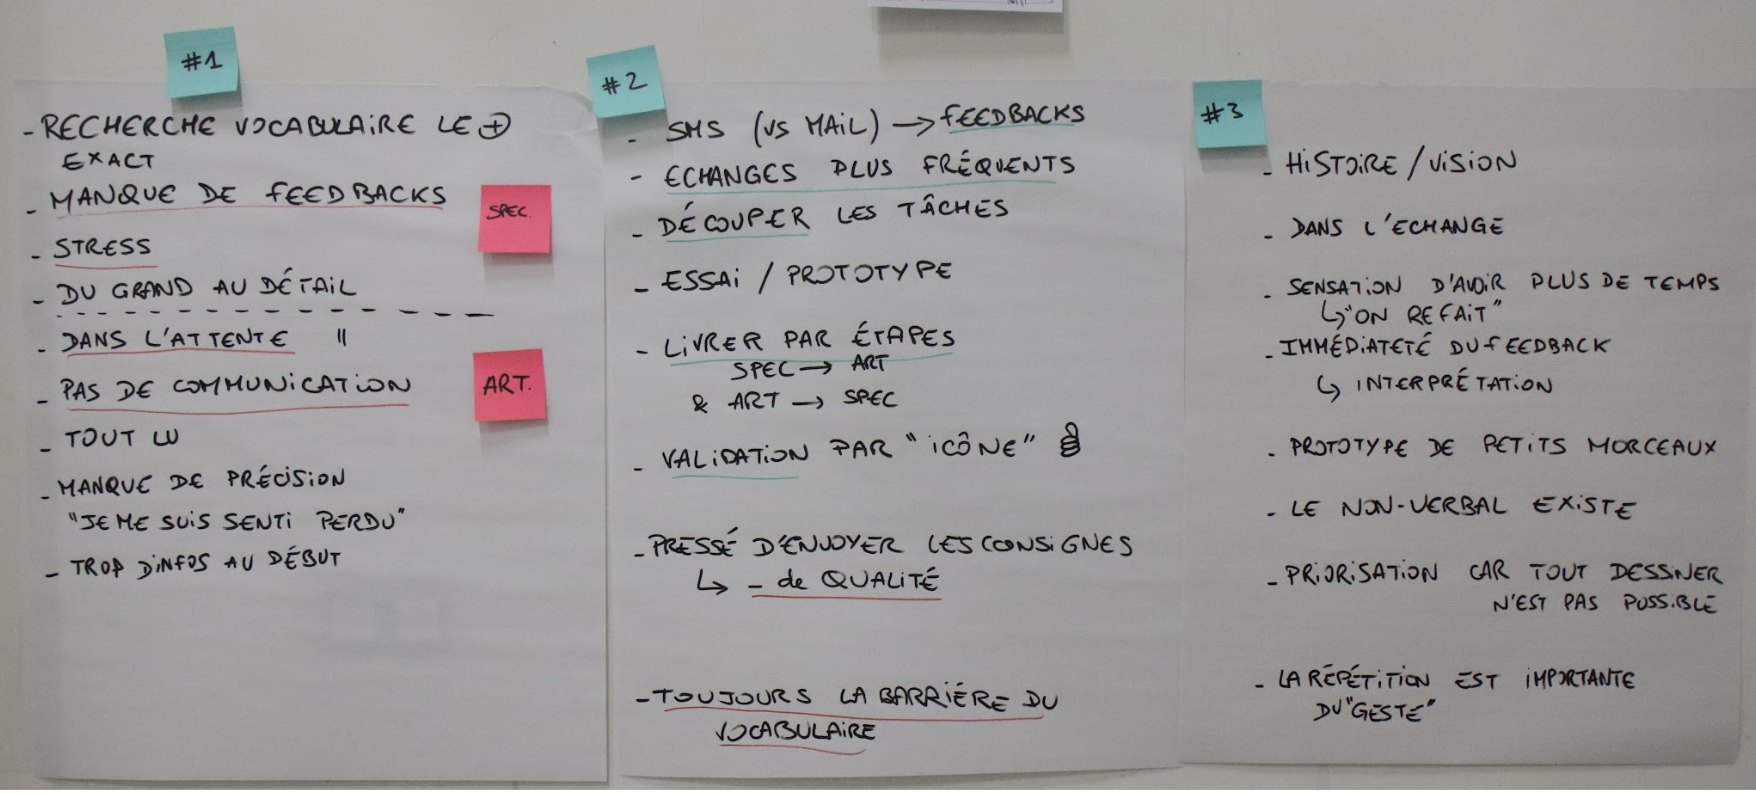 #1
- RECHERCHE VOCABULAIRE LE ⊕
EXACT
- MANQUE DE FEEDBACKS
SPEC.
- STRESS
- DU GRAND AU DÉTAIL
- DANS L'ATTENTE "
- PAS DE COMMUNICATION
ART.
- TOUT LU
- MANQUE DE PRÉCISION
"JE ME SUIS SENTI PERDU"
- TROP D'INFOS AU DÉBUT
#2
- SMS (VS MAIL) → FEEDBACKS
- ECHANGES PLUS FRÉQUENTS
- DÉCOUPER LES TÂCHES
- ESSAI / PROTOTYPE
- LIVRER PAR ÉTAPES
SPEC → ART
& ART → SPEC
- VALIDATION PAR "ICÔNE" 👍
- PRESSÉ D'ENVOYER LES CONSIGNES
↳ - de QUALITÉ
- TOUJOURS LA BARRIÉRE DU
VOCABULAIRE
#3
- HISTOIRE / VISION
- DANS L'ECHANGE
- SENSATION D'AVOIR PLUS DE TEMPS
↳ "ON REFAIT"
- IMMÉDIATETÉ DU FEEDBACK
↳ INTERPRÉTATION
- PROTOTYPE DE PETITS MORCEAUX
- LE NON-VERBAL EXISTE
- PRIORISATION CAR TOUT DESSINER
N'EST PAS POSSIBLE
- LA RÉPÉTITION EST IMPORTANTE
DU "GESTE"